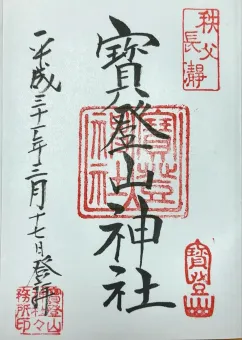 秩父
長瀞
寳登山
寳登山神社
平成三十一年三月十七日登拝
寳登山
神社々
務所印